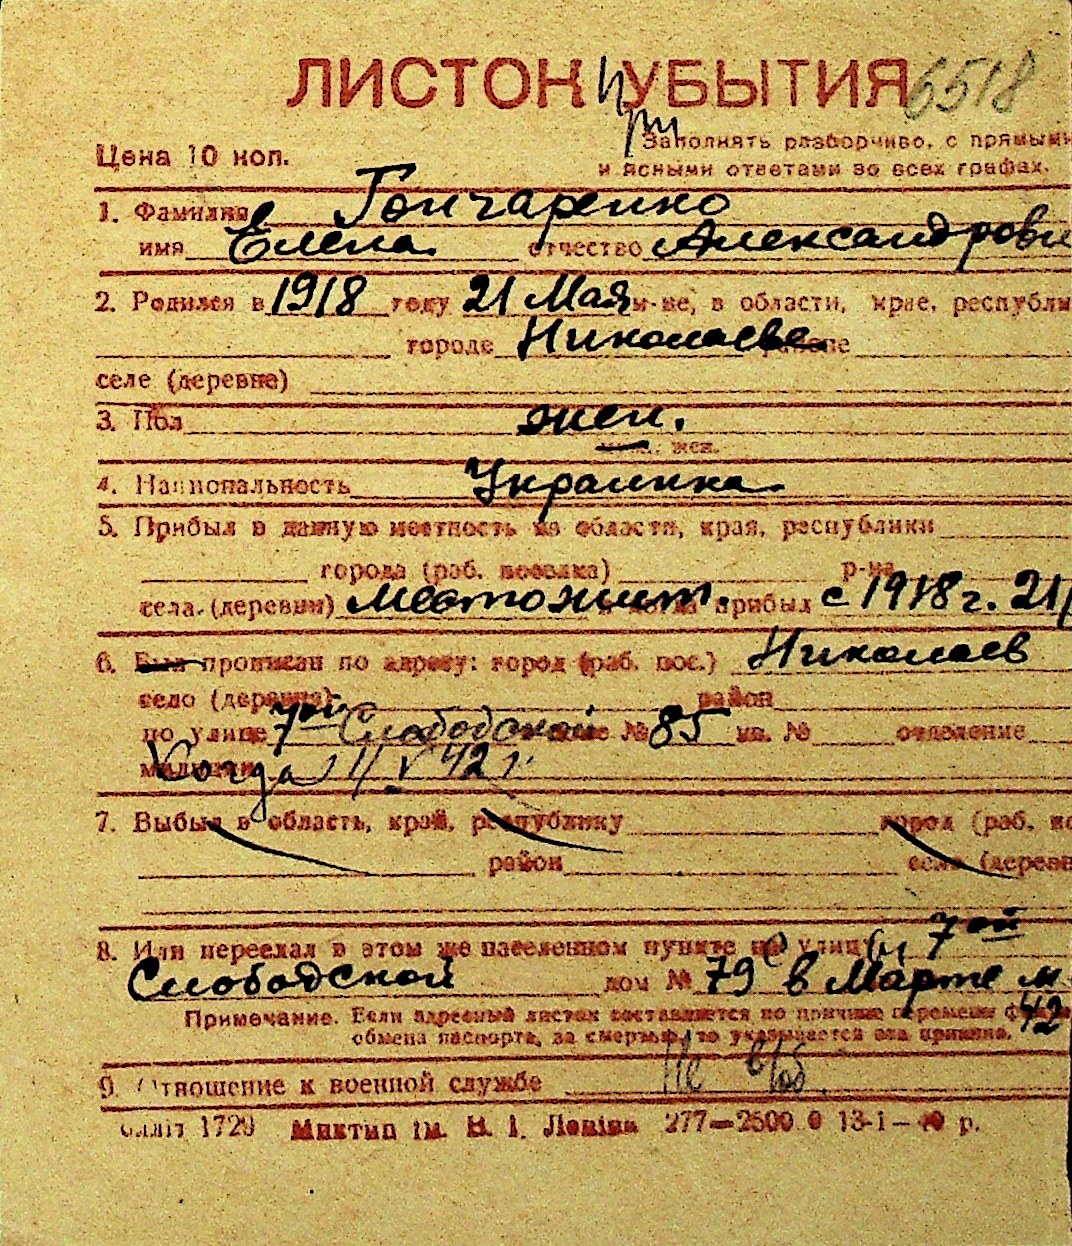 ЛИСТОК УБЫТИЯ 6518
при
Цена 10 коп.
Заполнять разборчиво, с прямыми
и ясными ответами во всех графах.
1. Фамилия Гончаренко
имя Елена отчество Александровн
2. Родился в 1918 году 21 Мая м-це, в области, крае, республи
городе Николаеве районе
селе (деревне)
3. Пол жен.
муж. жен.
4. Национальность Украинка
5. Прибыл в данную местность из области, края, республики
города (раб. поселка) р-на
села (деревни) местожит. прибыл с 1918 г. 21
6. Был прописан по адресу: город (раб. пос.) Николаев
село (деревня) район
по улице 7ой Слободской № 85 кв. № отделение
милиции Когда 11/V 42 г.
7. Выбыл в область, край, республику город (раб. по
район село (деревн
8. Или переехал в этом же населенном пункте на улицу 7ой
Слободской дом № 79 в Марте м
42
Примечание. Если адресный листок составляется по причине перемены фам
обмена паспорта, за смертью, то указывается эта причина.
9. Отношение к военной службе Не
олліт 1729 Миктип ім. В. І. Леніна 277—2500 0 13-1—40 р.